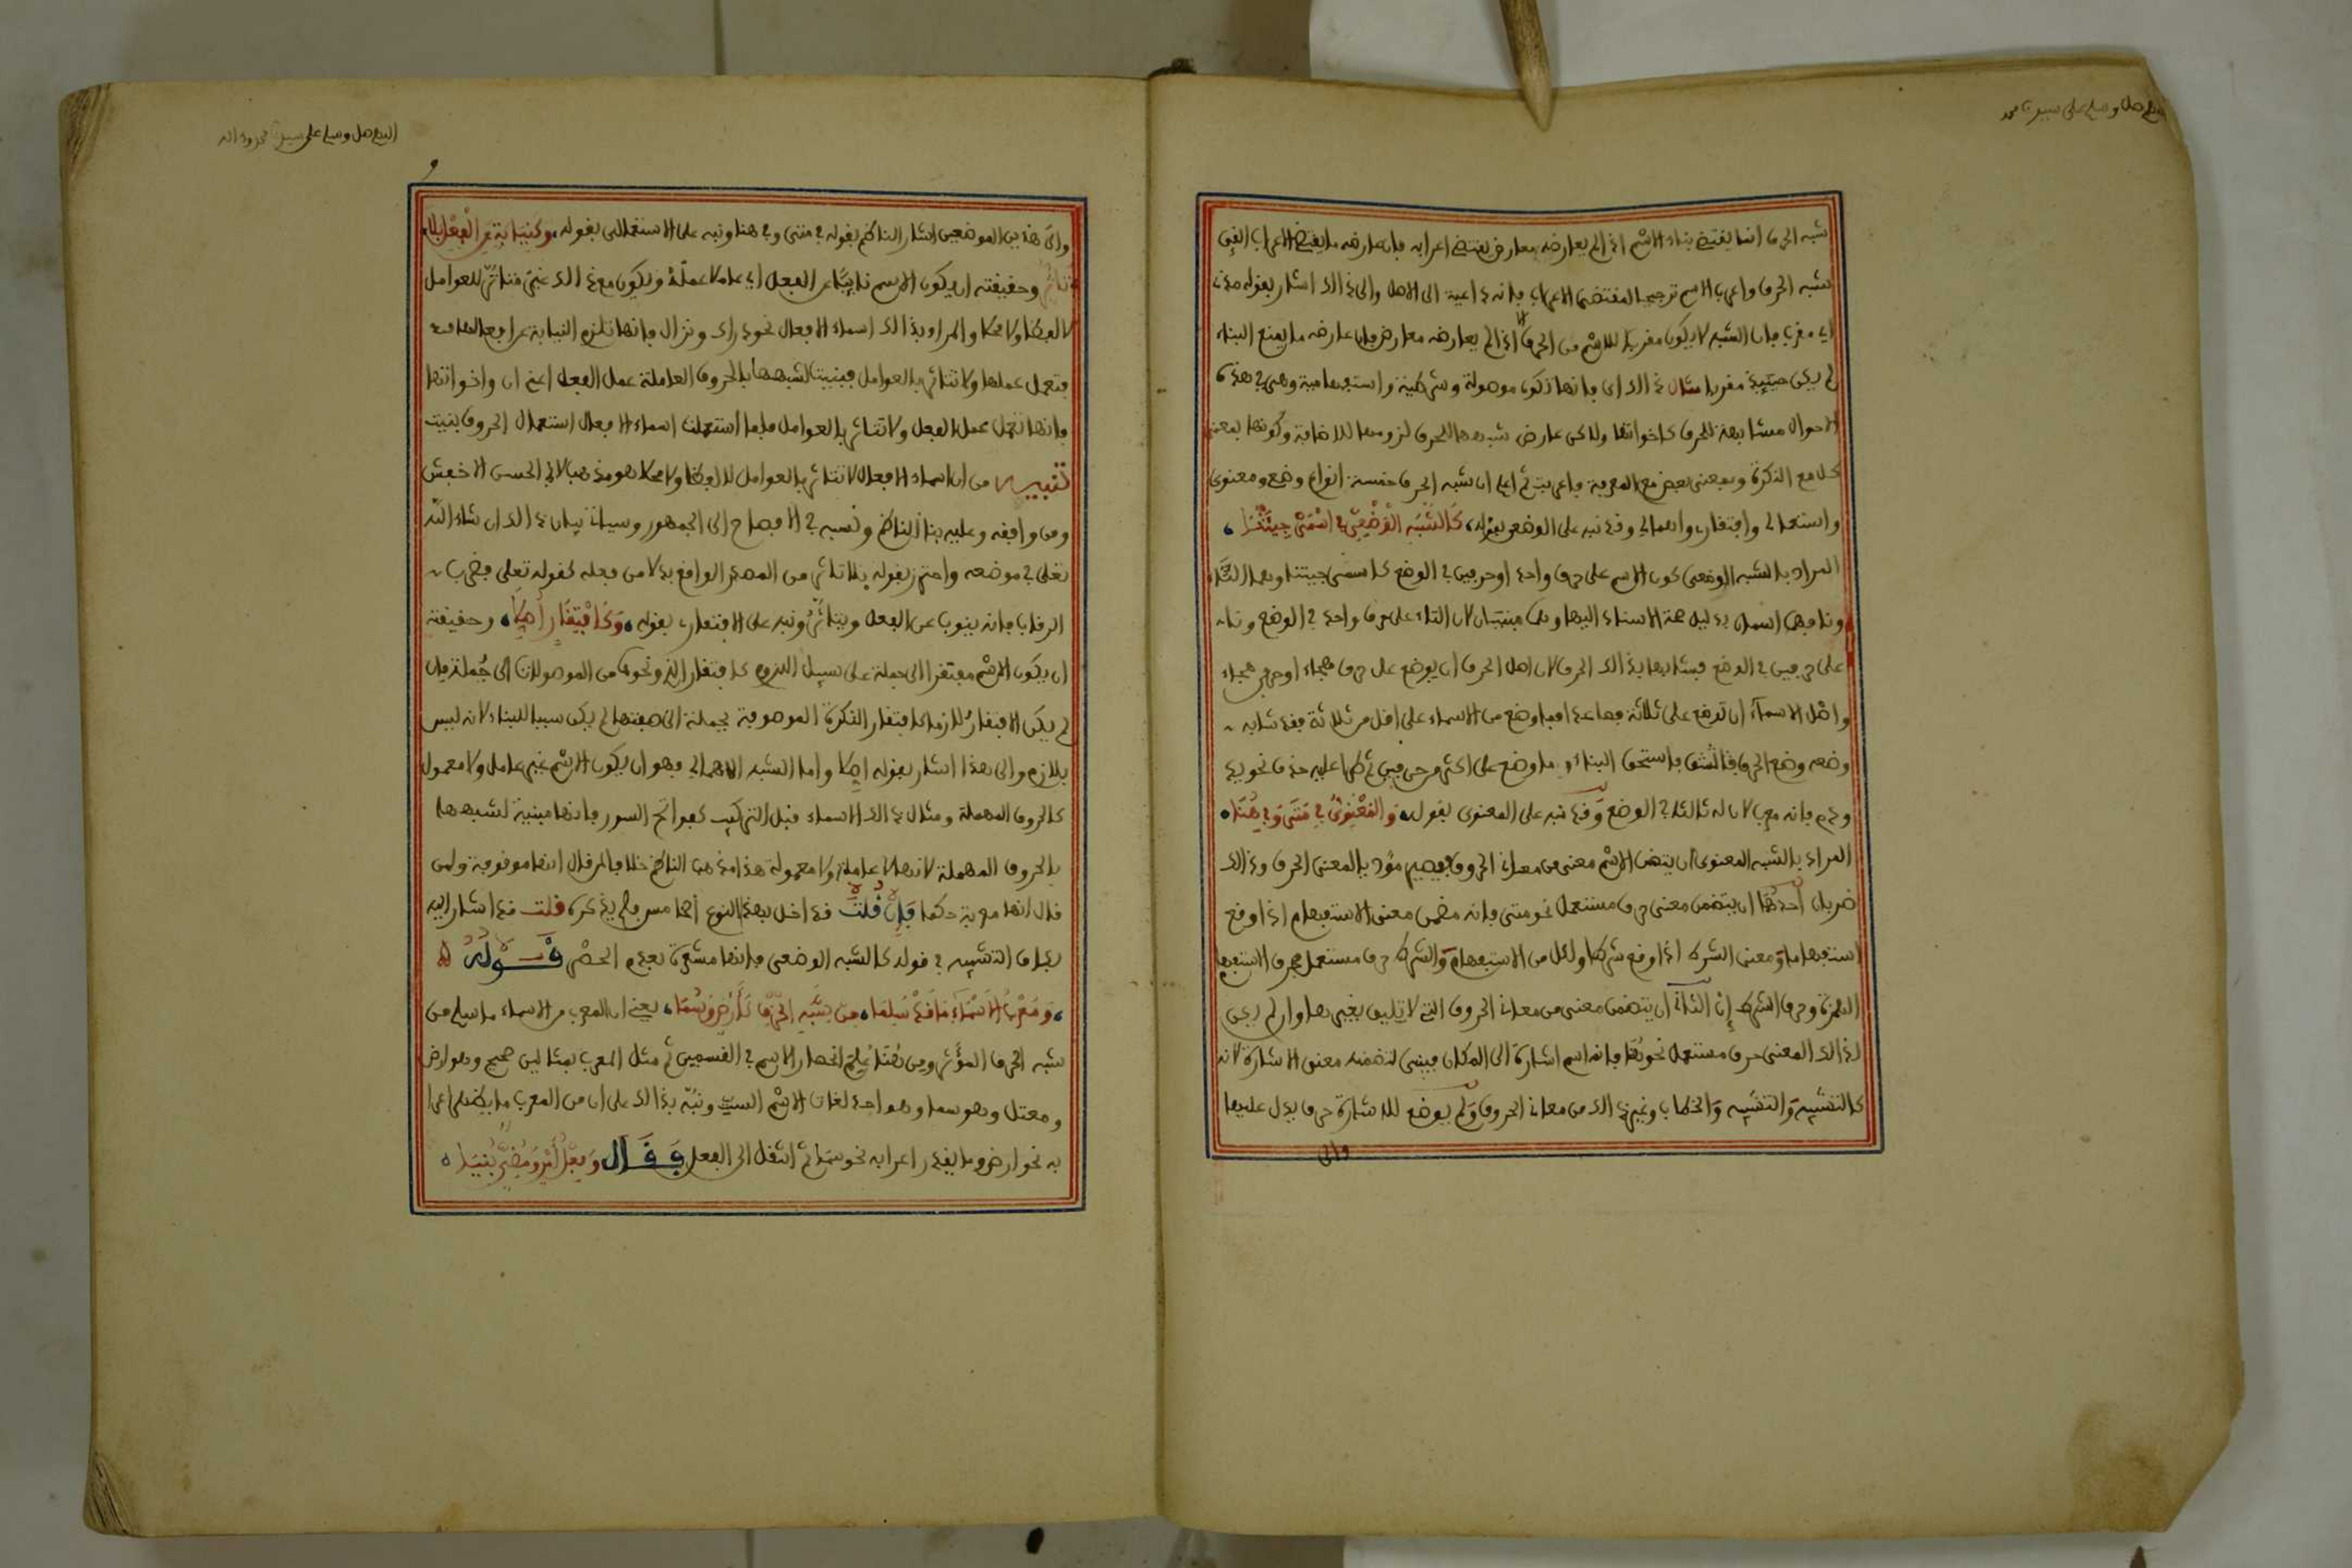 اللهم صل وسلم على سيدنا محمد
شبه الحرف انما يقتضي بناء الاسم اذا لم يعارضه معارض يقتضي اعرابه فان عارضه ما يقتضي الاعراب الغي
شبه الحرف واعرب الاسم ترجيحا لمقتضى الاعراب فانه داعية الى الاصل والى ذالك اشار بقوله مدن
اي مقرب فان الشبه لا يكون مقربا للاسم من الحرف الا اذا لم يعارضه معارض فان عارضه ما يمنع البناء
لم يكن حينئذ مقربا مثال ذالك اي فانها تكون موصولة وشرطية واستفهامية وهي في هذه
الاحوال مشابهة للحرف كاخواتها ولكن عارض شبهها للحرف لزومها للاضافة وكونها بمعنى
كل مع النكرة وبمعنى بعض مع المعرفة فاعربت ثم اعلم ان شبه الحرف خمسة انواع وضعي ومعنوي
واستعمالي وافتقاري واهمالي وقد نبه على الوضعي بقوله، كَالشَّبَهِ الْوَضْعِيِّ فِي اسْمَيْ جِئْتَنَا،
المراد بالشبه الوضعي كون الاسم على حرف واحد او حرفين في الوضع كاسمي جئتنا وهما التاء
ونا فهما اسمان بدليل صحة الاسناد اليهما وهما مبنيتان لان التاء على حرف واحد في الوضع ونا
على حرفين في الوضع فشابها بذالك الحرف لان اصل الحرف ان يوضع على حرف هجاء او حرفي هجاء
واصل الاسماء ان توضع على ثلاثة فصاعدا فما وضع من الاسماء على اقل من ثلاثة فقد شابه
وضعه وضع الحرف فاستحق البناء وما وضع على اكثر من حرفين ثم طرا عليه حذف نحو يد
ودم فانه معرب لان له ثالثا في الوضع وقد نبه على المعنوي بقوله، وَالْمَعْنَوِيِّ فِي مَتَى وَفِي هُنَا،
المراد بالشبه المعنوي ان يتضمن الاسم معنى من معاني الحروف فيصير مؤد بالمعنى الحرف وذالك
ضربان احدهما ان يتضمن معنى حرف مستعمل نحو متى فانه مضمن معنى الاستفهام اذا وقع
استفهاما ومعنى الشرط اذا وقع شرطا ولكل من الاستفهام والشرط حرف مستعمل فحرف الاستفهام
الهمزة وحرف الشرط إن الثاني ان يتضمن معنى من معاني الحروف التي لا تليق بغيرها وان لم يكن
لذالك المعنى حرف مستعمل نحو هنا فانه اسم اشارة الى المكان فبني لتضمنه معنى الاشارة لانه
كالتنبيه والتشبيه والخطاب وغير ذالك من معاني الحروف ولم يوضع للاشارة حرف يدل عليها
والى
اللهم صل وسلم على سيدنا محمد وءاله
والى هذين الموضعين اشار الناظم بقوله في متى وفي هنا ونبه على الاستعمالي بقوله، وَكَنِيَابَةٍ عَنِ الْفِعْلِ بِلَا
تَأَثُّرٍ وحقيقته ان يكون الاسم نائبا عن الفعل اي عاملا عمله ويكون مع ذالك غير متاثر للعوامل
لا لفظا ولا محلا والمراد بذالك اسماء الافعال نحو دراك ونزال فانها تلزم النيابة عن افعالها
فتعمل عملها ولا تتاثر بالعوامل فبنيت لشبهها بالحروف العاملة عمل الفعل اعني ان واخواتها
فانها تعمل عمل الفعل ولا تتاثر بالعوامل فلما استعملت اسماء الافعال استعمال الحروف بنيت
تنبيه من ان اسماء الافعال لا تتاثر بالعوامل لا لفظا ولا محلا هو مذهب ابي الحسن الاخفش
ومن وافقه وعليه بنا الناظم ونسبه في الافصاح الى الجمهور وسياتي بيان ذالك ان شاء الله
تعلى في موضعه واحترز بقوله بلا تاثر من المصدر الواقع بدلا من فعله كقوله تعلى فضرب
الرقاب فانه ينوب عن الفعل ويتاثر ونبه على الافتقاري بقوله، وَكَافْتِقَارٍ أُصِّلَا، وحقيقته
ان يكون الاسم مفتقرا الى جملة على سبيل اللزوم كافتقار الذي ونحوه من الموصولات الى جملة فان
لم يكن الافتقار لازما كافتقار النكرة الموصوفة بجملة الى صفتها لم يكن سببا للبناء لانه ليس
بلازم والى هذا اشار بقوله اصلا واما الشبه الاهمالي فهو ان يكون الاسم غير عامل ولا معمول
كالحروف المهملة ومثال ذالك الاسماء قبل التركيب كفواتح السور فانها مبنية لشبهها
بالحروف المهملة لانها لا عاملة ولا معمولة هذا مذهب الناظم خلافا لمن قال انها موقوفة ولمن
قال انها معربة حكما فَإِن قُلْتَ قد اخل بهذا النوع الخامس فلم يذكره قلت قد اشار اليه
بكاف التشبيه في قوله كالشبه الوضعي فانها مشعرة بعدم الحصر قَوْلُهُ
، وَمُعْرَبُ الْأَسْمَاءِ مَا قَدْ سَلِمَا، مِنْ شَبَهِ الْحَرْفِ كَأَرْضٍ وَسُمَا، يعني ان المعرب من الاسماء ما سلم من
شبه الحرف المؤثر ومن هنا علم انحصار الاسم في القسمين ثم مثل المعرب بمثالين صحيح وهو ارض
ومعتل وهو سما وهو احد لغات الاسم الست ونبه بذالك على ان من المعرب ما يظهر اعرا
به نحو ارض وما يقدر اعرابه نحو سما ثم انتقل الى الفعل فَقَال وَفِعْلُ أَمْرٍ وَمُضِيٍّ بُنِيَا،